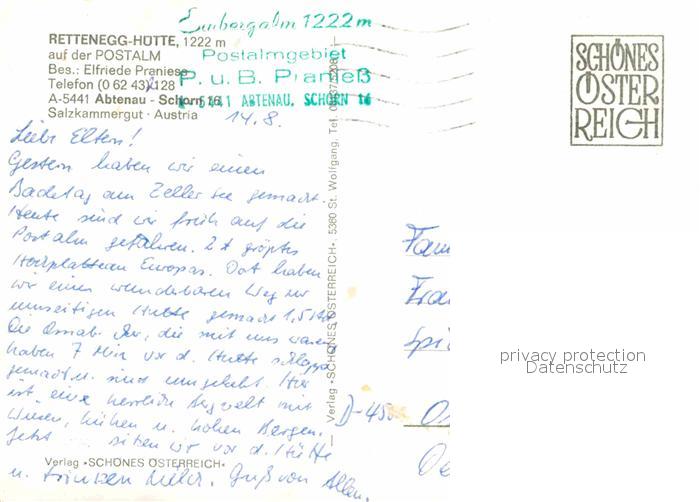 Embergalm 1222 m
Postalmgebiet
P. u. B. Pranieß
A-5441 ABTENAU, SCHORN 16
RETTENEGG-HÜTTE, 1222 m
auf der POSTALM
Bes.: Elfriede Praniess
Telefon (0 62 43) 128
A-5441 Abtenau - Schorn 16
Salzkammergut · Austria
SCHÖNES
ÖSTER
REICH
14.8.
Liebe Eltern!
Gestern haben wir einen
Badetag am Zeller See gemacht.
Heute sind wir früh auf die
Postalm gefahren. 2t größtes
Hochplateau Europas. Dort haben
wir einen wunderbaren Weg zur
Hütte gemacht 1,5 Std
Die Osnabr., die mit uns waren
haben 7 Min vor d. Hütte schlapp
gemacht u. sind umgekehrt. Hier
ist eine herrliche Bergwelt mit
Wiesen, Kühen u. hohen Bergen.
Jetzt sitzen wir vor d. Hütte
u. trinken Milch. Gruß von Allen.
Verlag »SCHÖNES ÖSTERREICH«
Verlag »SCHÖNES ÖSTERREICH«, 5360 St. Wolfgang, Tel.
Fam
Fra
Spi
D-45
privacy protection
Datenschutz